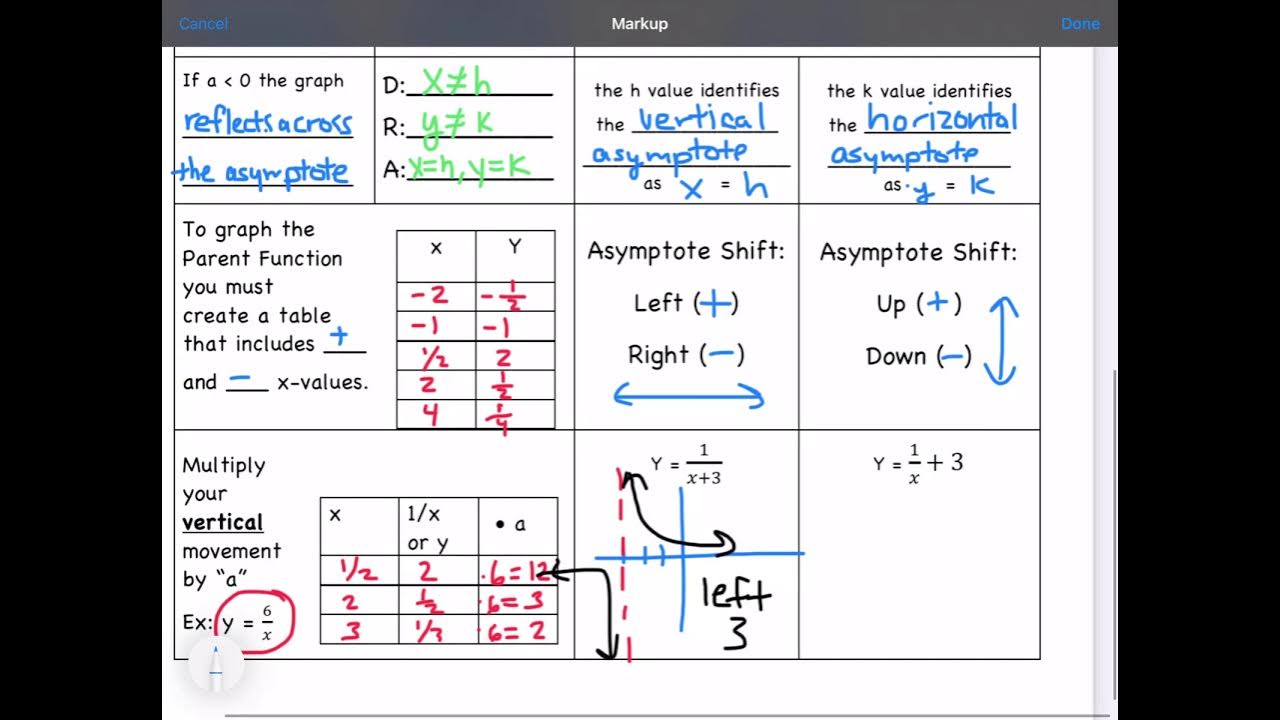 Cancel
Markup
Done
If a < 0 the graph
reflects across
the asymptote
D: x≠h
R: y≠k
A: x=h, y=k
the h value identifies
the vertical
asymptote
as x = h
the k value identifies
the horizontal
asymptote
as y = k
To graph the
Parent Function
you must
create a table
that includes +
and - x-values.
x Y
-2 -1/2
-1 -1
1/2 2
2 1/2
4 1/4
Asymptote Shift:
Left (+)
Right (-)
Asymptote Shift:
Up (+)
Down (-)
Multiply
your
vertical
movement
by "a"
Ex: y = 6/x
x 1/x or y • a
1/2 2 ·6=12
2 1/2 ·6=3
3 1/3 ·6=2
Y = 1/(x+3)
left
3
Y = 1/x + 3